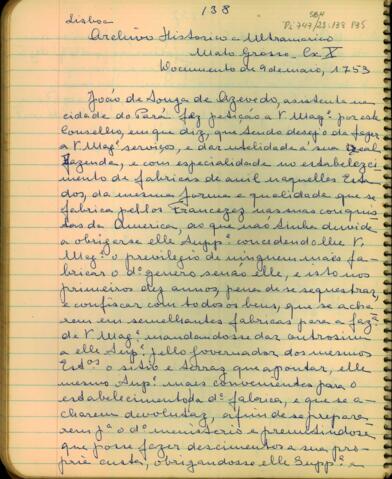 138
Lisboa
Archivo Historico e Ultramarico
Mato Grosso - Cx X
Documento de 9 de maio, 1.753
João de Souza de Azevedo, assistente na
cidade do Pará fez petição a V Magᵉ por este
Conselho, em que diz, que tendo desejo de fazer
a V Magᵉ serviço, e dar utelidade á sua Real
Fazenda, e com especialidade no estabeleci-
mento de fabricas de anil naquelles Esta-
dos, da mesma forma e qualidade que se
fabrica pellos Francezez nas suas conquis-
tas da America, ao que não tinha duvida
a obrigarse elle Suppᵉ concedendolhe V.
Magᵉ o previlegio de ninguem mais fa-
bricar o dᵒ genero senão elle, e isto nos
primeiros dez annos, pena de se sequestrar,
e confiscar com todos os bens, que se acha
rem em semelhantes fabricas para a fazᵃ
de V Magᵉ mandandosse dar outrosim
a elle Supᵉ pello Governador dos mesmos
Estᵒˢ o sitio e terras que apontar, elle
mesmo Supᵉ mais convenientes para o
estabelecimento da dᵃ fabrica, e que se a-
charem devolutas, afim de se prepara-
rem pᵃ o dᵒ menisterio e premitindose
que posse fazer descimentos a sua pro-
prie custa, obrigandosse elle Suppᵉ a